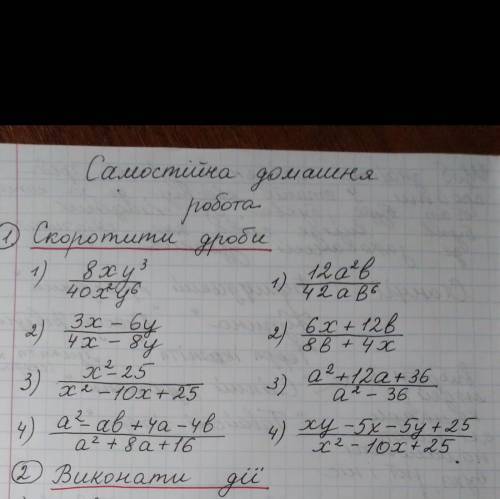 Самостійна домашня
робота
① Скоротити дроби
1) 8xy³/40x²y⁶ 1) 12a²b/42ab⁶
2) 3x - 6y/4x - 8y 2) 6x + 12b/8b + 4x
3) x² - 25/x² - 10x + 25 3) a² + 12a + 36/a² - 36
4) a² - ab + 4a - 4b/a² + 8a + 16 4) xy - 5x - 5y + 25/x² - 10x + 25.
② Виконати дії